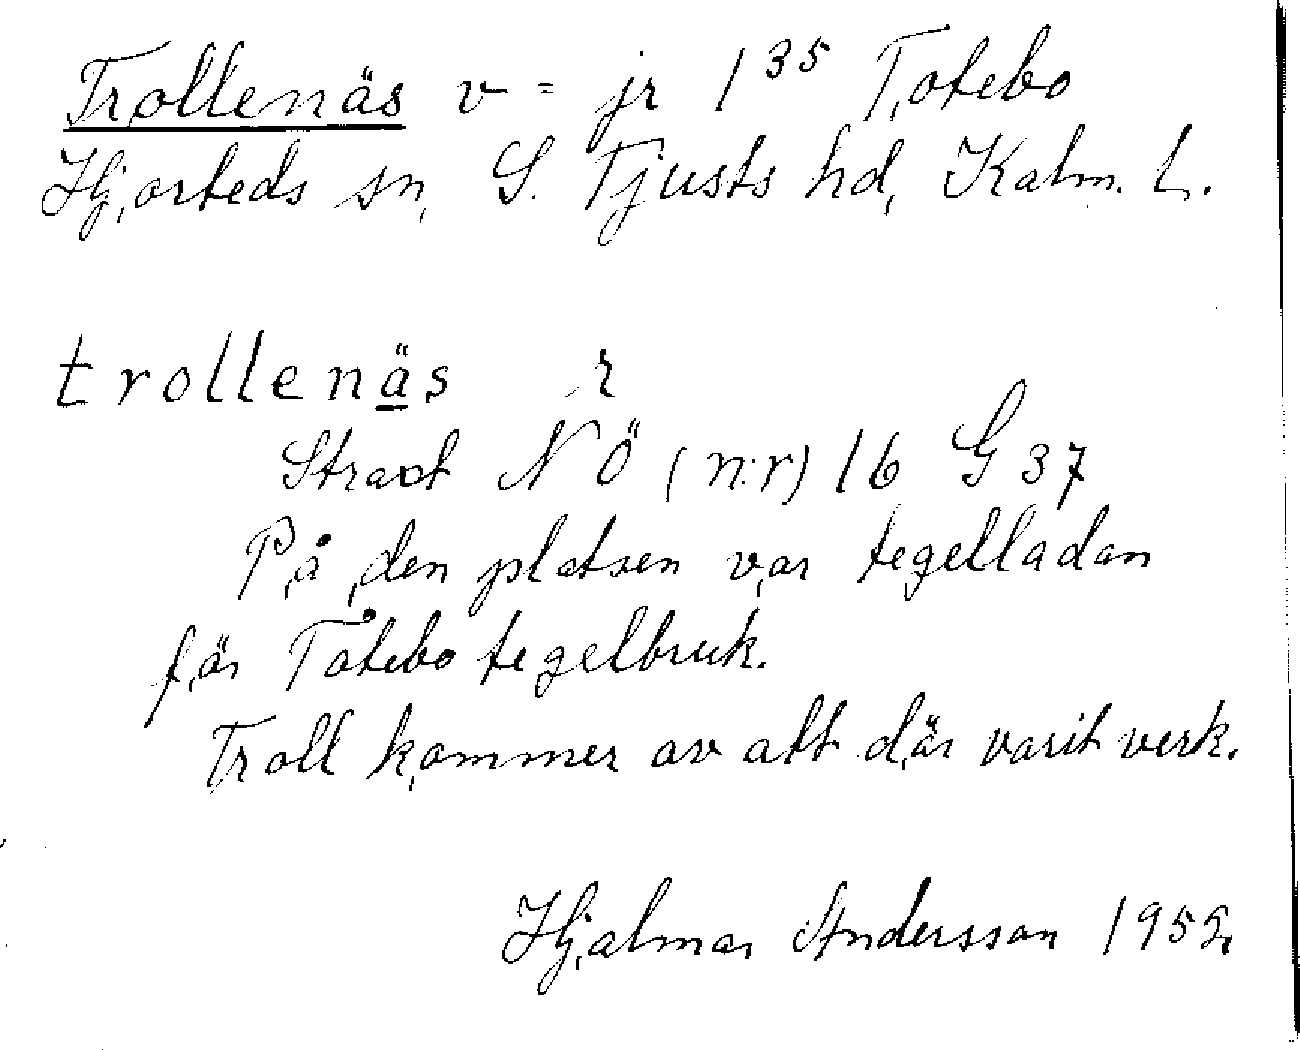 Trollenäs v = jr 1 35 Totebo
Hjorteds sn, S. Tjusts hd, Kalm. L.
trollenäs
Straxt NÖ (n:r) 16 G 37
På den platsen var tegelladan
för Totebo tegelbruk.
Troll kommer av att där varit verk.
Hjalmar Andersson 1952